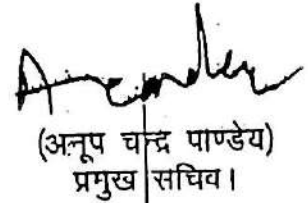 (अनूप चन्द्र पाण्डेय)
प्रमुख सचिव।